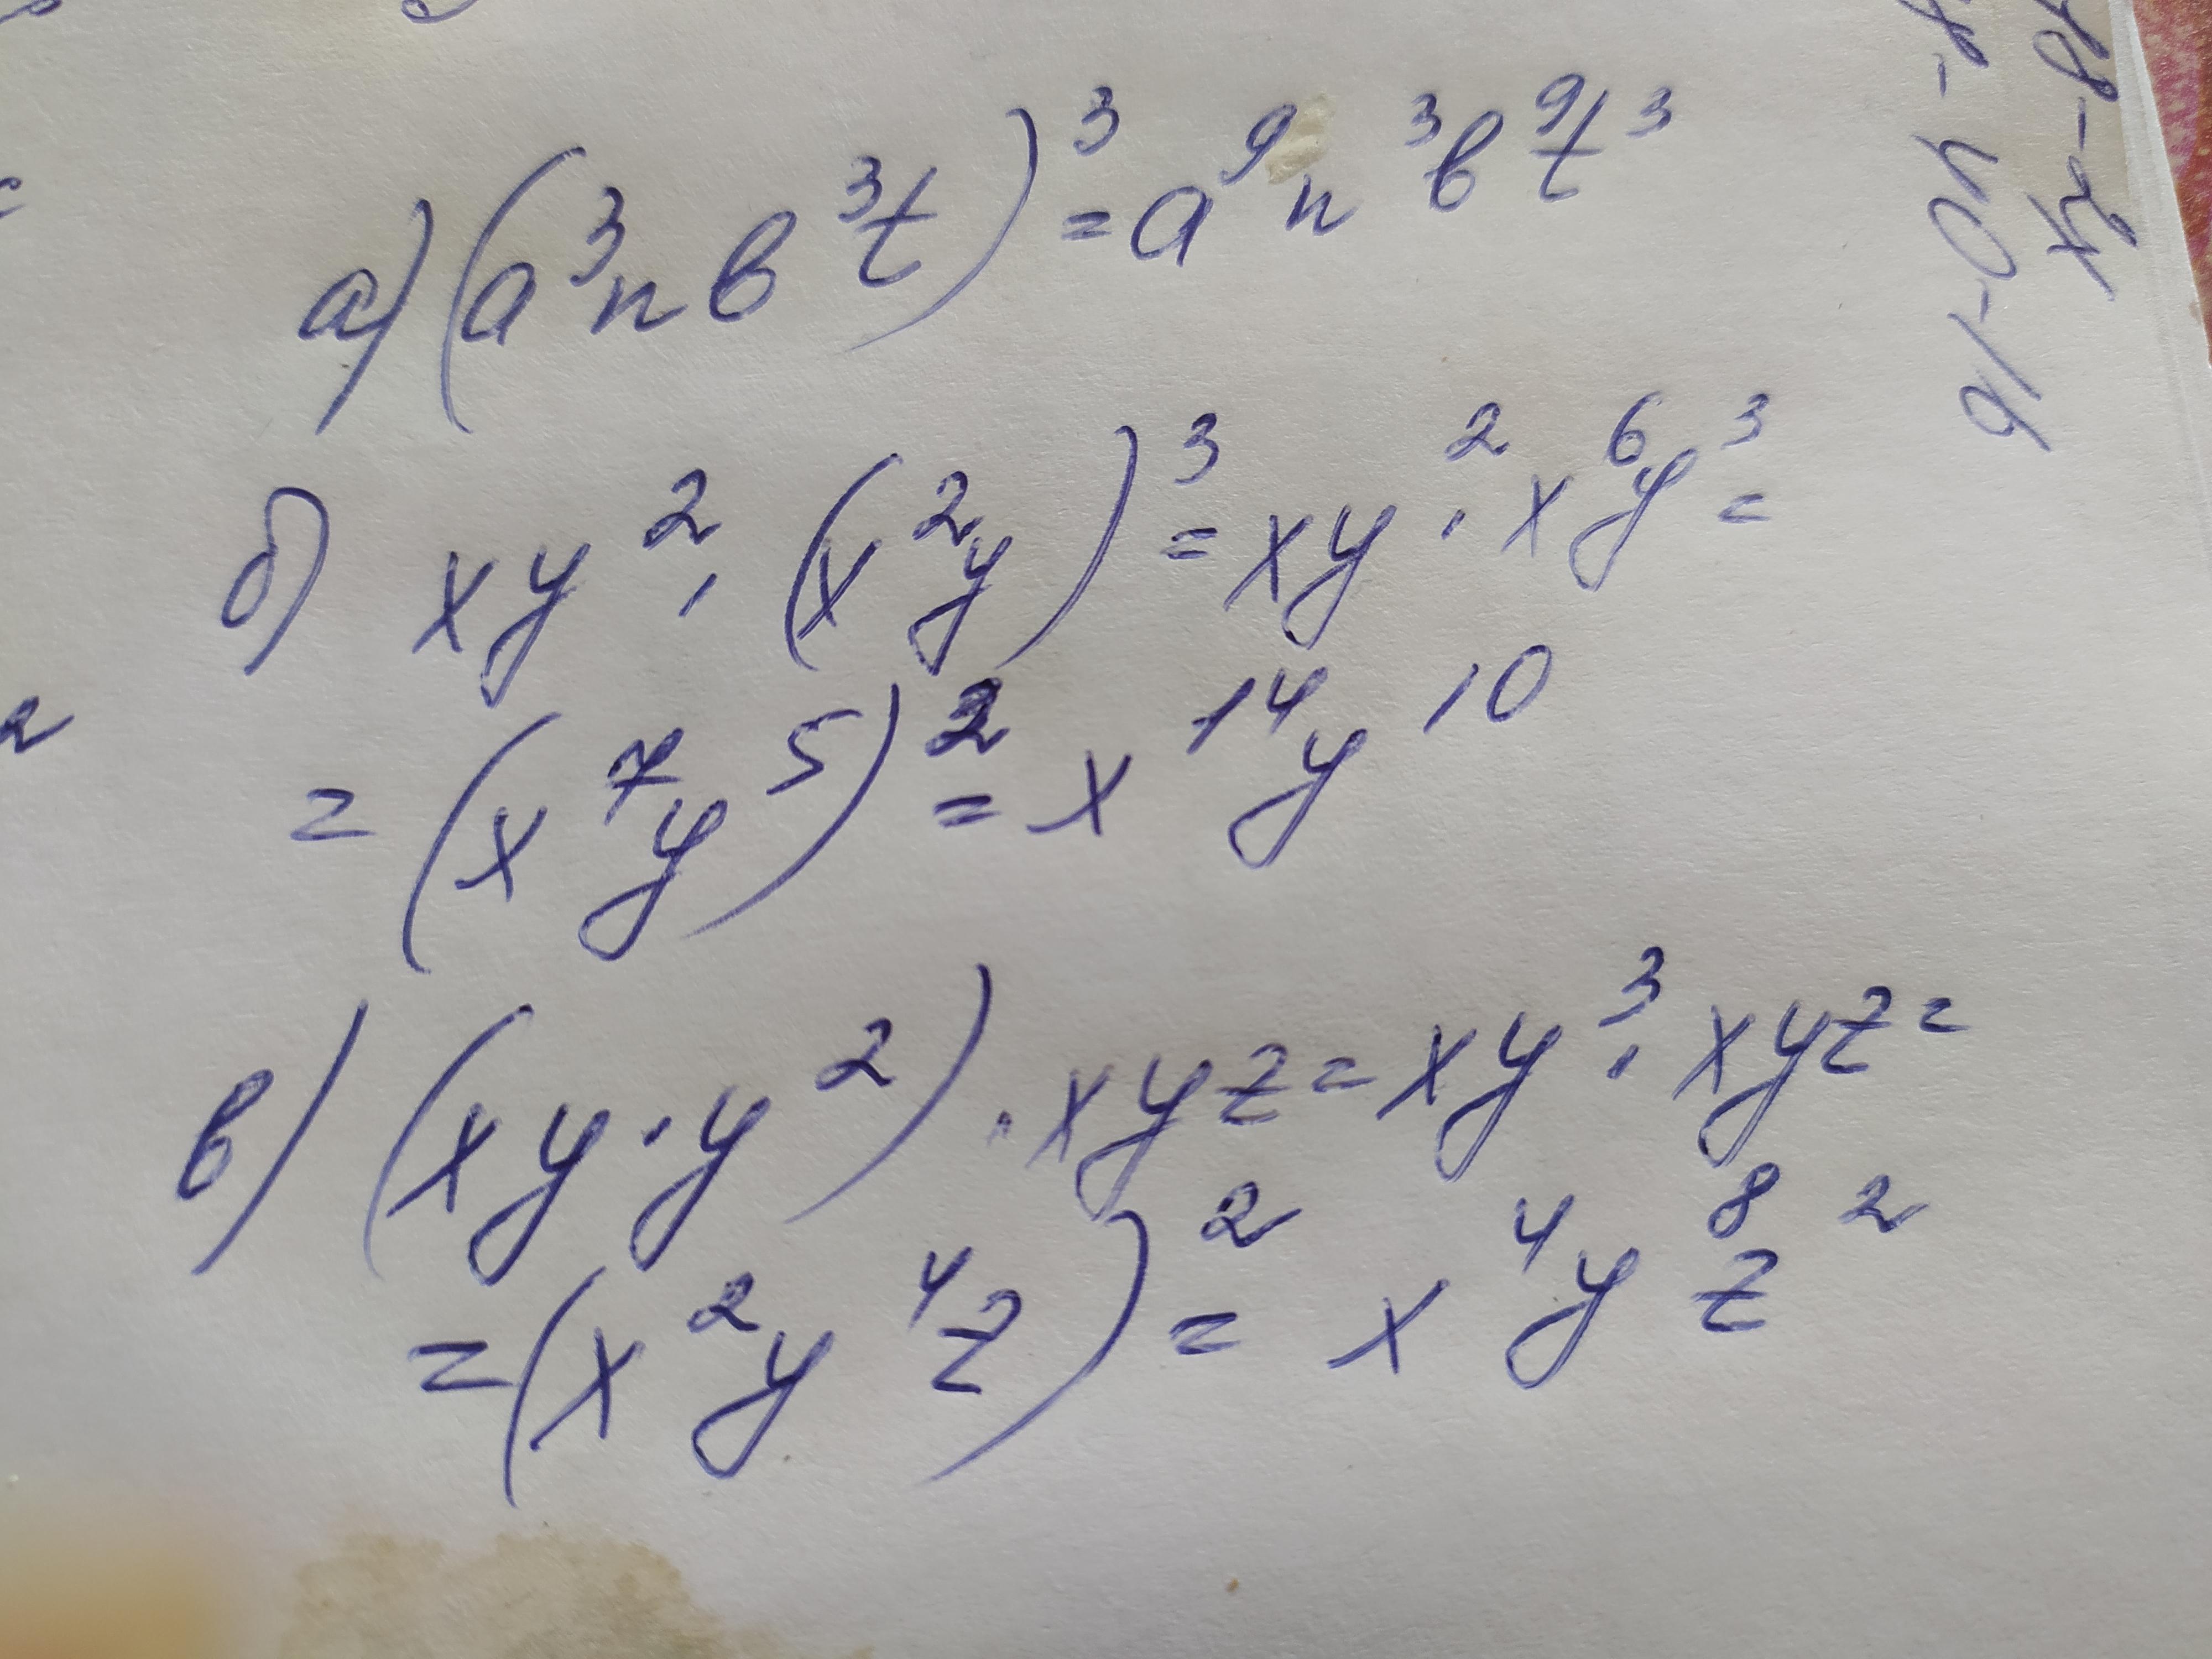 а) (a³nb³t)³ = a⁹n³b⁹t³
б) xy² · (x²y)³ = xy² · x⁶y³ =
= (x⁷y⁵)² = x¹⁴y¹⁰
в) (xy · y²) · xyz = xy³ · xyz =
= (x²y⁴z)² = x⁴y⁸z²